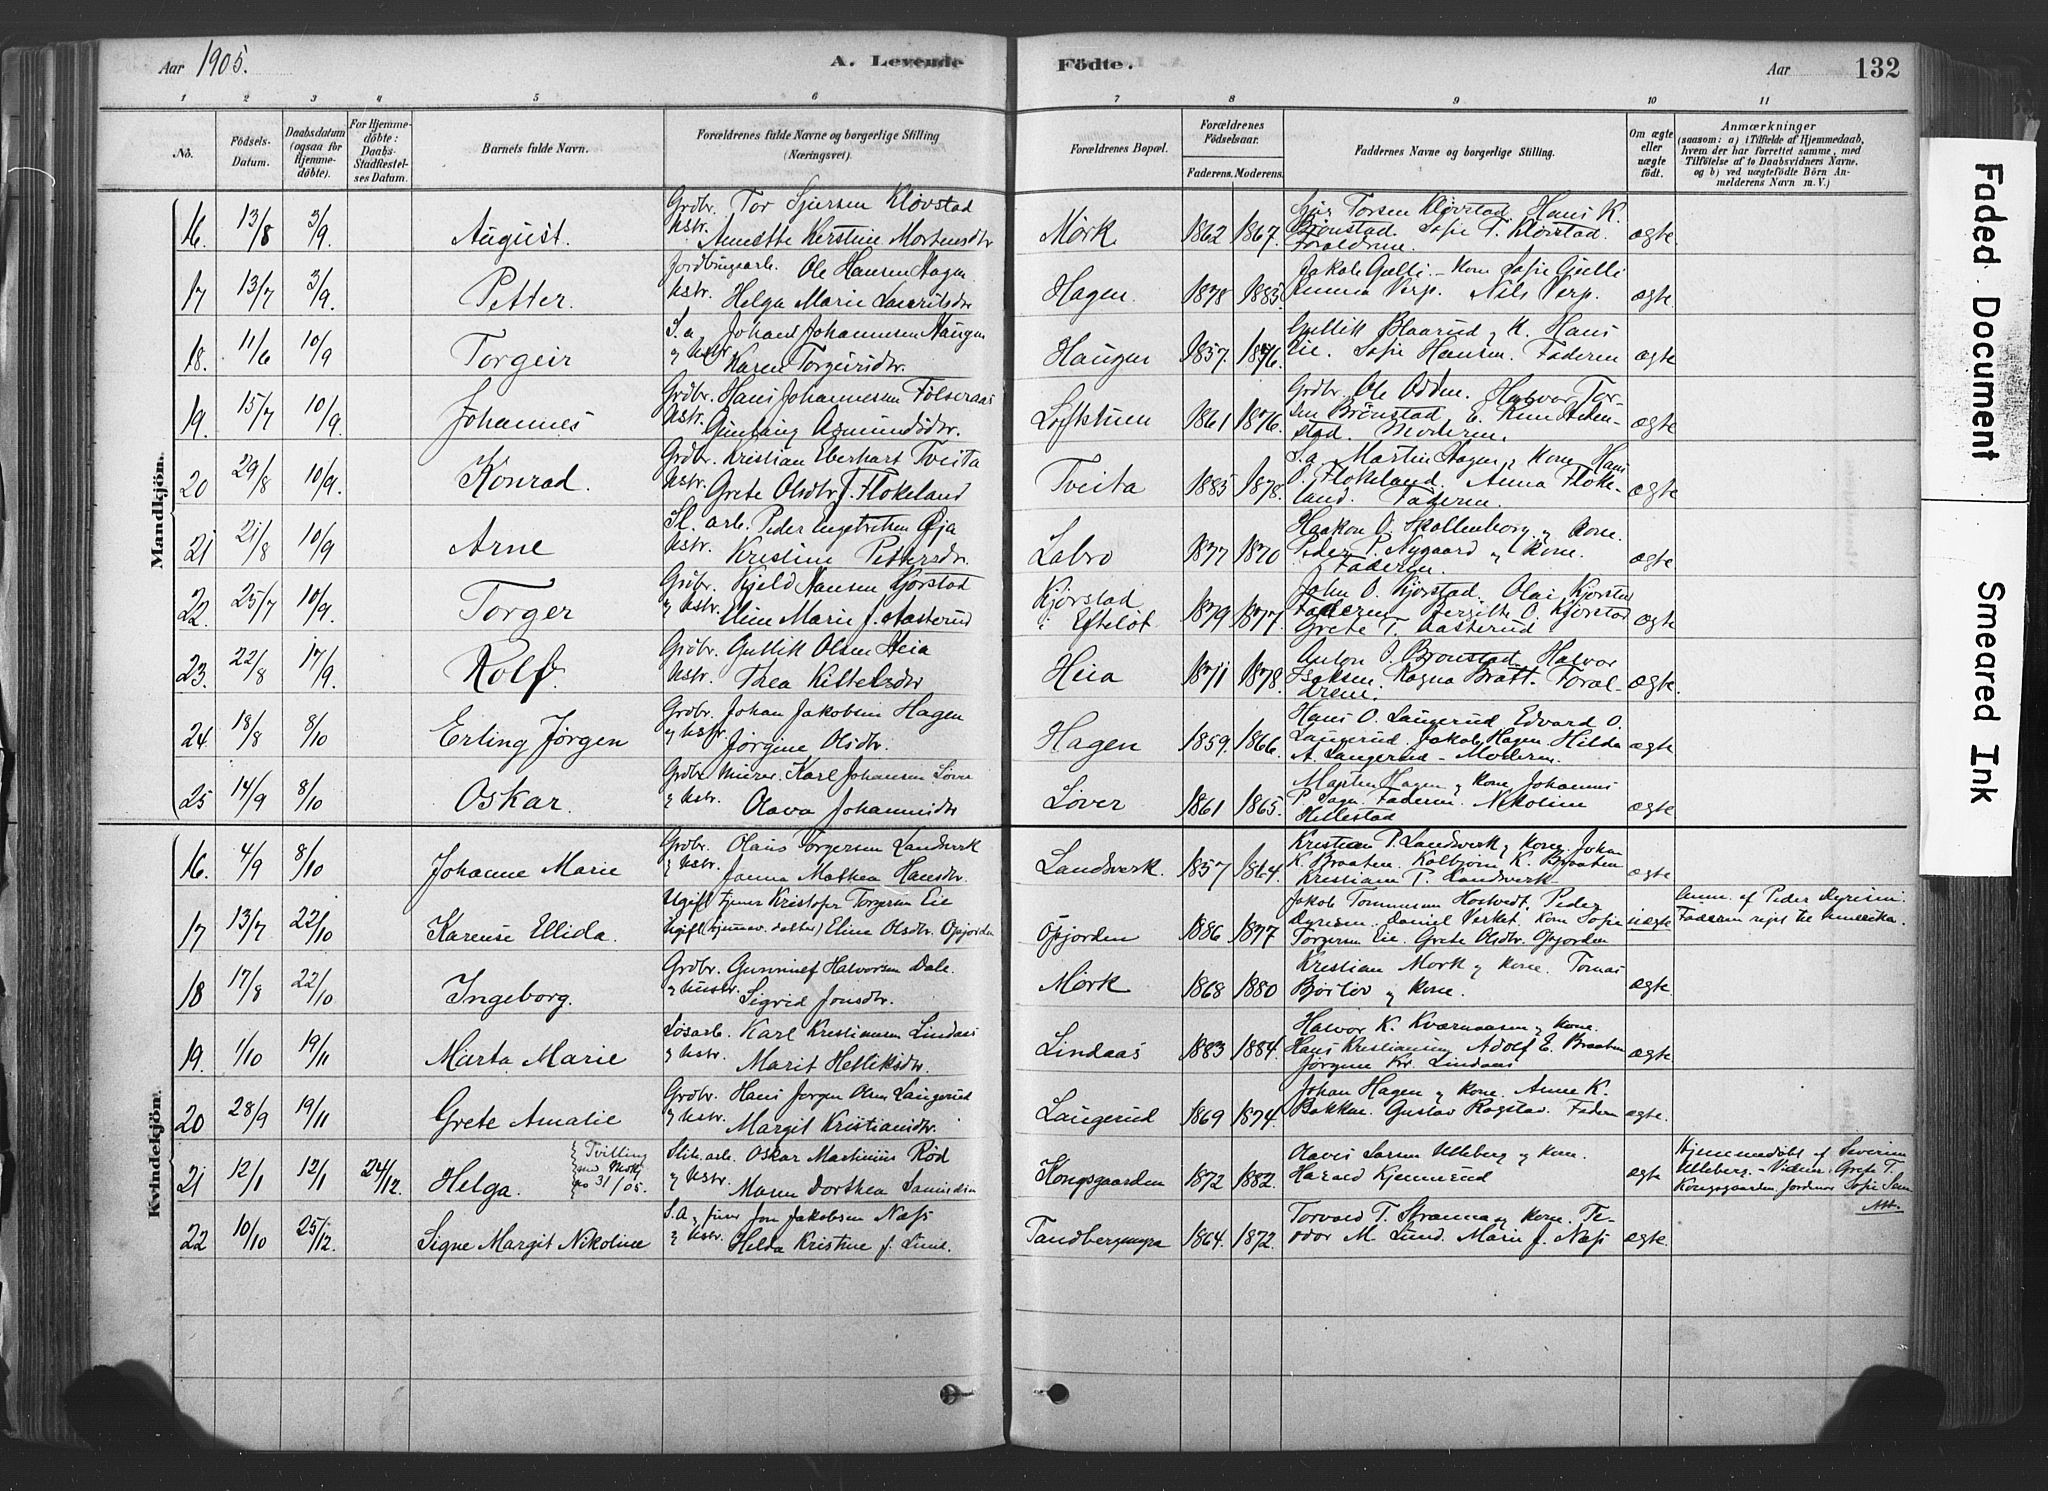 Aar 1905.
A. Levende Födte.
Aar
132
1 2 3 4 5 6 7 8 9 10 11
No.
Födsels-Datum.
Daabsdatum (ogsaa for Hjemmedöbte).
For Hjemmedöbte: Daabs-Stadfæstelses Datum.
Barnets fulde Navn.
Forældrenes fulde Navne og borgerlige Stilling (Næringsvei).
Forældrenes Bopæl.
Forældrenes Födselsaar.
Faderens. Moderens.
Faddernes Navne og borgerlige Stilling.
Om ægte eller uægte födt.
Anmærkninger
(saasom: a) i Tilfælde af Hjemmedaab, hvem der har forrettet samme, med Tilföielse af to Daabsvidners Navne. og b) ved uægtefödte Börn Anmelderens Navn m. V.)
Mandkjön.
16. 13/8 3/9. August. Grdbr. Tor Sjursen Kløvstad Hstr. Annette Kerstine Mortensdtr Mørk 1862 1867. Torsen Kløvstad. Hans K. Brønstad. Sofie T. Kløvstad. Forældrene. ægte
17 13/7 3/9. Petter. Jordbrugsarb. Ole Hansen Hagen Hstr. Helga Marie Lauritsdtr Hagen. 1878 1883. Jakob Gjelli - Kone Sofie Gjelli Emma Verp. Nils Verp. ægte
18. 11/6 10/9 Torgeir S.a. Johans Johannesen Haugen og Hstr. Karen Torgeirsdtr. Haugen 1857. 1876. Gullik Blaarud og K. Hans Eie. Sofie Hansen. Faderen ægte
19. 15/7 10/9. Johannes Grdbr. Hans Johannesen Følseraas Hstr. Gunlaug Asmundsdtr. Loftstuen 1861 1876. Grdbr. Ole Odden. Halvor Torsen Brønstad. Moderen. ægte
20 29/8 10/9. Konrad. Grdbr. Kristian Eberhart Tveita Hstr. Grete Olsdtr f. Flokeland Tveita 1883 1878. S.a. Martin Hagen og Kone Hans O. Flokeland. Anna Flokeland. Faderen. ægte
21 21/8 10/9 Arne Sl. arb. Peder Engebretsen Øja Hstr. Kristine Pettersdtr. Labro 1877 1870 Haakon O. Skollenborg og Kone. Peder P. Nygaard og Kone. Faderen. ægte
22. 25/7 10/9. Torger Grdbr. Kjeld Hansen Kjørstad og Hstr. Eline Marie f. Aasterud Kjørstad i Efteløt 1879 1877. John O. Kjørstad. Olai Kjørstad Faderen Bergitte O. Kjørstad Grete T. Aasterud ægte
23. 22/8 17/9. Rolf. Grdbr. Gullik Olsen Heia Hstr. Thea Kittelsdtr Heia 1871 1878. Anton O. Brønstad. Halvor Isaksen. Ragna Bratt. Forældrene. ægte.
24. 18/8 8/10 Erling Jørgen Grdbr. Johan Jakobsen Hagen og Hstr. Jørgine Olsdtr. Hagen 1859. 1866. Hans O. Laugerud. Edvard O. Laugerud. Jakob Hagen. Hilda A. Laugerud - Moderen. ægte
25 14/9 8/10 Oskar. Grdbr. Murer. Karl Johansen Løver og Hstr. Olava Johannesdtr Løver 1861 1865. Martin Hagen og Kone Johannes P. Faderen. Nikoline Hellestad ægte
Kvindekjön.
16. 4/9 8/10 Johanne Marie Grdbr. Olaus Torgersen Landverk og Hstr. Janna Mathea Hansdtr. Landverk. 1857 1864. Kristian P. Landverk og Kone. Johan K. Braaten. Kolbjørn K. Braaten Kristiane P. Landverk. ægte
17 13/7 22/10 Karense Ellida. Ugift tjener Kristofer Torgersen Eie Ugift (hjemmev. datter) Eline Olsdtr. Opjorden Opjorden 1886 1877 Jakob Tommesen Hostvedt. Peder Daniel Verket. Kone Sofie Torgersen Eie. Grete Olsdtr. Opjorden uægte Anm. af Peder Faderen rejst til Amerika.
18 17/8 22/10 Ingeborg. Grdbr. Gunnulf Halvorsen Dale. og Hustr. Sigrid Jonsdtr. Mørk 1868 1880 Kristian Mørk og Kone. Tomas Bjørløv og Kone. ægte.
19. 1/10 19/11 Marta Marie Løsarb. Karl Kristiansen Lindaas og Hstr. Marit Helliksdtr. Lindaas 1883 1884. Halvor K. Kværnaasen og Kone. Hans Kristiansen. Adolf E. Braaten Jørgine Kr. Lindaas ægte
20 28/9 19/11 Grete Amalie Grdbr. Hans Jørgen Olsen Laugerud og Hstr. Margit Kristiansdtr. Laugerud 1869 1874. Johan Hagen og Kone. Anne K. Bakken. Gustav Faderen ægte.
21 12/1 12/1 24/12. Helga. Tvilling med Mdk. no 31/05. Slib. arb. Oskar Martinius Rød og Hstr. Maren Dorthea Kongsgaarden 1872 1882. Ulleberg og Kone. Harald Kjennerud ægte Hjemmedøbt af Severine Ulleberg. - Vidner: Grete T. Kongsgaarden, Jordmor Sofie
22 10/10 25/12. Signe Margit Nikoline S.a. Jon Jakobsen Næss og Hstr. Hilda Kristine f. Lund. Tandbergmyra 1864. 1872. Torvald T. Stranna og Kone. Teodor M. Lund. Marie J. Næss ægte.
Faded Document
Smeared Ink